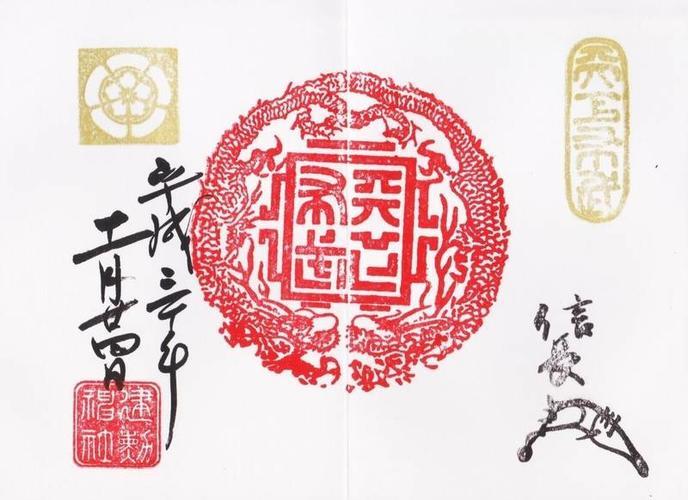 天下布武
信長
天下
布武
平成三十年
十一月廿四日
建勲
神社